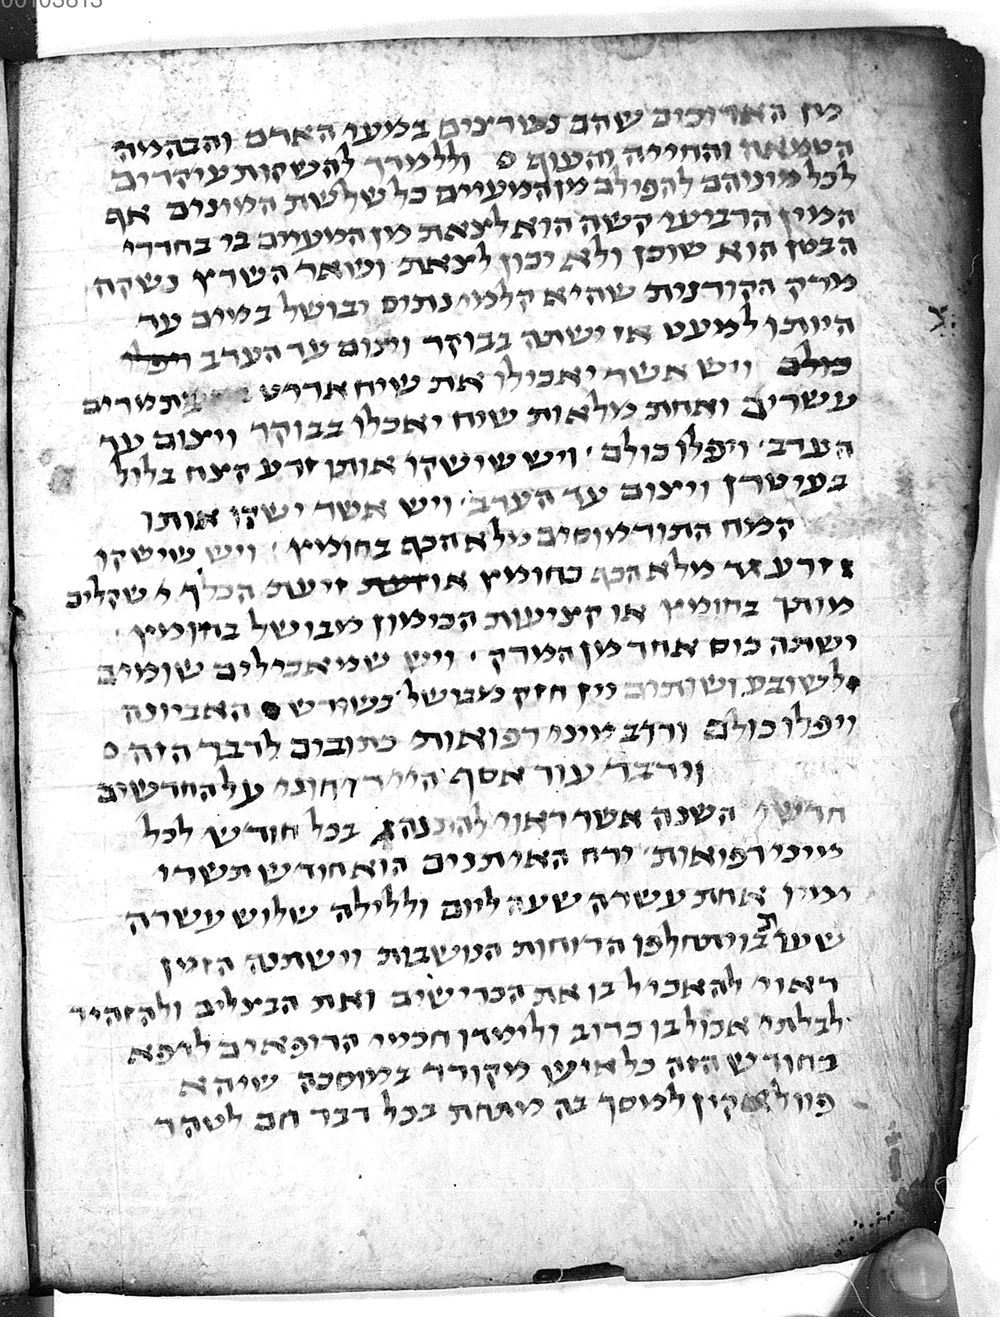 00103813
מן הארוכים שהם משרצים במעי האדם והבהמה
הטמאה והחייה והעוף וללמדך להשקות עיקרים
לכל מיניהם להפילם מן המעיים כל שלשת המינים אף
המין הרביעי קשה הוא לצאת מן המעיים כי בחדרי
הבטן הוא שוכן ולא יכון לצאת ושאר השרץ נשקה
מרק הקורנית שהיא קלמינתיס יבושל במים עד
היותו למעט אז ישתה בבוקר ויצום עד הערב ויפלו
כולם ויש אשר יאכילו את שיח בתמרים
עשרים ואחת מלאות שיח יאכלו בבוקר ויצום עד
הערב ויפלו כולם ויש שישקו אותן זרע קצח בלול
בעיטרן ויצום עד הערב ויש אשר ישקו אותו
קמח התורמוסים מלא הכף בחומץ ויש שישקו
זרע גד מלא הכף בחומץ או זיעת הכלך שקלים
מותך בחומץ או קציעות הכימון מבושל בחומץ
ישתה כוס אחד מן המרק ויש שמאכילים שומים
לשובע ושותים יין חזק מבושל בשורש האביונה
ויפלו כולם ורוב מיני רפואות כתובים לדבר הזה
וידבר עוד אסף היירחוני על החדשים
חדשי השנה אשר ראוי להתנהג בכל חודש לכל
מיני רפואות ירח האיתנים הוא חודש תשרי
אחת עשרה שעה ליום וללילה שלוש עשרה
שעו ויתחלפו הרוחות הנושבות וישתנה הזמן
ראוי להאכיל בו את הכרישים ואת הבצלים ולהזהיר
לבלתי אכול בו כרוב ולימדו חכמי הרופאים לרפא
בחודש הזה כל איש מקורר במוסכה שיהא
למסך בה מתחת בכל דבר חם לטהר